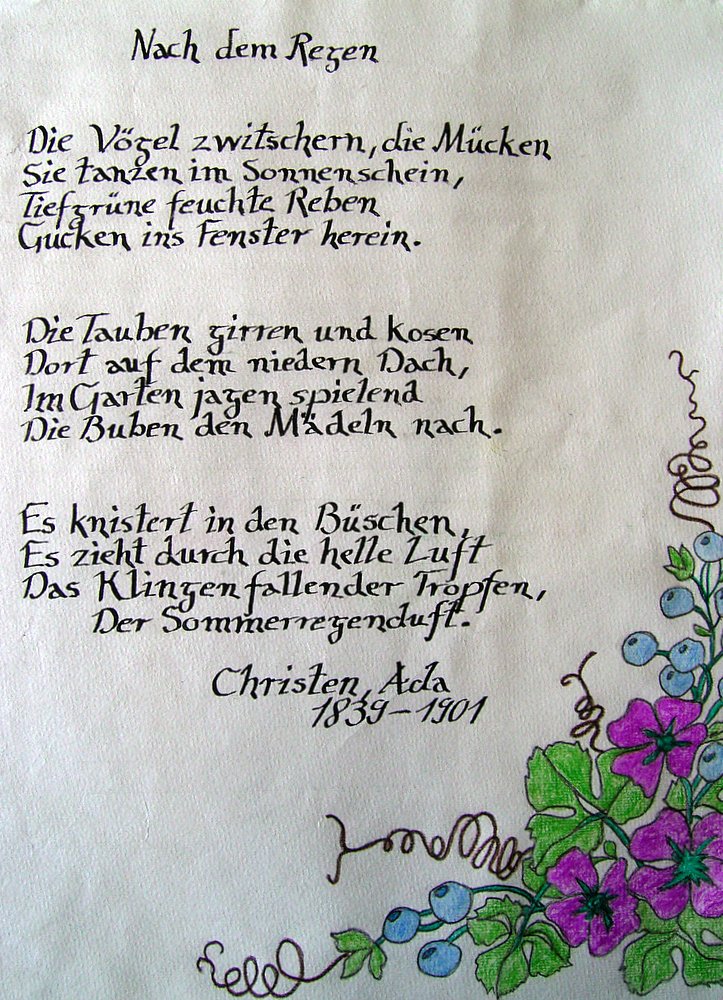 Nach dem Regen
Die Vögel zwitschern, die Mücken
Sie tanzen im Sonnenschein,
Tiefgrüne feuchte Reben
Gucken ins Fenster herein.
Die Tauben girren und kosen
Dort auf dem niedern Dach,
Im Garten jagen spielend
Die Buben den Mädeln nach.
Es knistert in den Büschen,
Es zieht durch die helle Luft
Das Klingen fallender Tropfen,
Der Sommerregenduft.
Christen, Ada
1839-1901